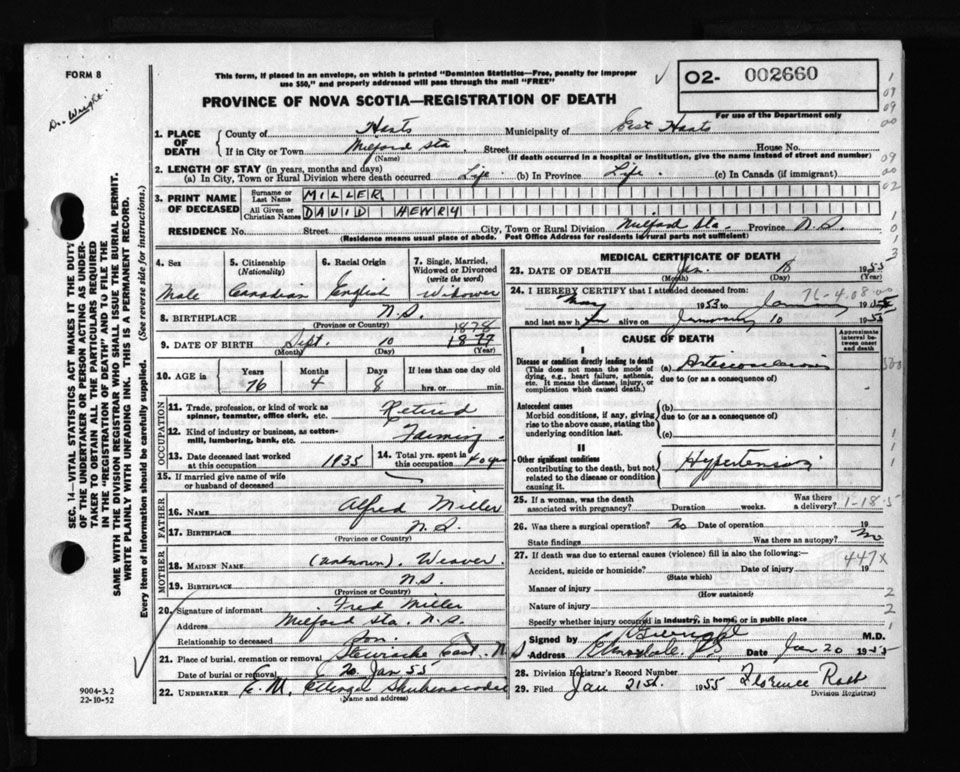 FORM 8
Dr. Wright.
This form, if placed in an envelope, on which is printed "Dominion Statistics—Free, penalty for improper
use $50," and properly addressed will pass through the mail "FREE"
O2- 002660
For use of the Department only
PROVINCE OF NOVA SCOTIA—REGISTRATION OF DEATH
1. PLACE OF DEATH County of Hants Municipality of East Hants
If in City or Town Milford Sta. Street House No.
(Name) (If death occurred in a hospital or institution, give the name instead of street and number)
2. LENGTH OF STAY (in years, months and days)
(a) In City, Town or Rural Division where death occurred Life. (b) In Province Life. (c) In Canada (if immigrant)
3. PRINT NAME OF DECEASED Surname or Last Name MILLER
All Given or Christian Names DAVID HENRY
RESIDENCE No. Street City, Town or Rural Division Milford Sta. Province N.S.
(Residence means usual place of abode. Post Office Address for residents in rural parts not sufficient)
4. Sex Male
5. Citizenship (Nationality) Canadian
6. Racial Origin English
7. Single, Married, Widowed or Divorced (write the word) Widower
8. BIRTHPLACE N.S.
(Province or Country)
9. DATE OF BIRTH Sept. 10 1879 1878
(Month) (Day) (Year)
10. AGE in Years Months Days If less than one day old
76 4 8 hrs. or min.
OCCUPATION
11. Trade, profession or kind of work as spinner, teamster, office clerk, etc. Retired
12. Kind of industry or business, as cotton-mill, lumbering, bank, etc. Farming
13. Date deceased last worked at this occupation 1935
14. Total yrs. spent in this occupation 40 yrs
15. If married give name of wife or husband of deceased
FATHER
16. NAME Alfred Miller
17. BIRTHPLACE N.S.
(Province or Country)
MOTHER
18. MAIDEN NAME (unknown). Weaver.
19. BIRTHPLACE N.S.
(Province or Country)
20. Signature of informant Fred Miller
Address Milford Sta. N.S.
Relationship to deceased Son.
21. Place of burial, cremation or removal Stewiacke East. N.S
Date of burial or removal 20 Jan 55
22. UNDERTAKER E. M. Ettinger Shubenacadie
(Name and address)
MEDICAL CERTIFICATE OF DEATH
23. DATE OF DEATH Jan. 18 1955
(Month) (Day)
24. I HEREBY CERTIFY that I attended deceased from: 76-4-08-00
May 1953 to January 1955
and last saw him alive on January 10 1955
CAUSE OF DEATH
Approximate interval between onset and death
I
Disease or condition directly leading to death
(This does not mean the mode of dying, e.g., heart failure, asthenia, etc. It means the disease, injury, or complication which caused death.)
(a) Arteriosclerosis
due to (or as a consequence of)
Antecedent causes
Morbid conditions, if any, giving rise to the above cause, stating the underlying condition last.
(b)
due to (or as a consequence of)
(c)
II
Other significant conditions
contributing to the death, but not related to the disease or condition causing it.
Hypertension
25. If a woman, was the death associated with pregnancy? Duration weeks. Was there a delivery? 1-18-5
26. Was there a surgical operation? No Date of operation 19
State findings Was there an autopsy? no
27. If death was due to external causes (violence) fill in also the following: 447X
Accident, suicide or homicide? Date of injury 19
(State which)
Manner of injury
(How sustained)
Nature of injury
Specify whether injury occurred in industry, in home, or in public place
Signed by M.D.
Address Elmsdale N.S Date Jan 20 1955
28. Division Registrar's Record Number
29. Filed Jan 21st. 1955 Florence
(Division Registrar)
SEC. 14—VITAL STATISTICS ACT MAKES IT THE DUTY
OF THE UNDERTAKER OR PERSON ACTING AS UNDER-
TAKER TO OBTAIN ALL THE PARTICULARS REQUIRED
IN THE "REGISTRATION OF DEATH" AND TO FILE THE
SAME WITH THE DIVISION REGISTRAR WHO SHALL ISSUE THE BURIAL PERMIT.
WRITE PLAINLY WITH UNFADING INK. THIS IS A PERMANENT RECORD.
Every item of information should be carefully supplied. (See reverse side for instructions.)
9004-3.2
22-10-52